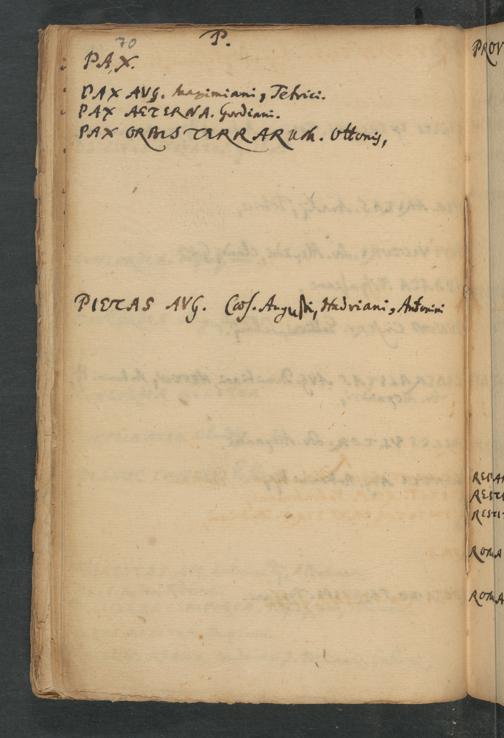 70
P.
PAX.
PAX AVG. Maximiani, Tetrici.
PAX AETERNA. Gordiani.
PAX ORBIS TARRARUM. Ottonis,
PIETAS AVG. Caes. Augusti, Hadriani, Antonini
PROV
RESTI
RESTI
ROMA
ROMA